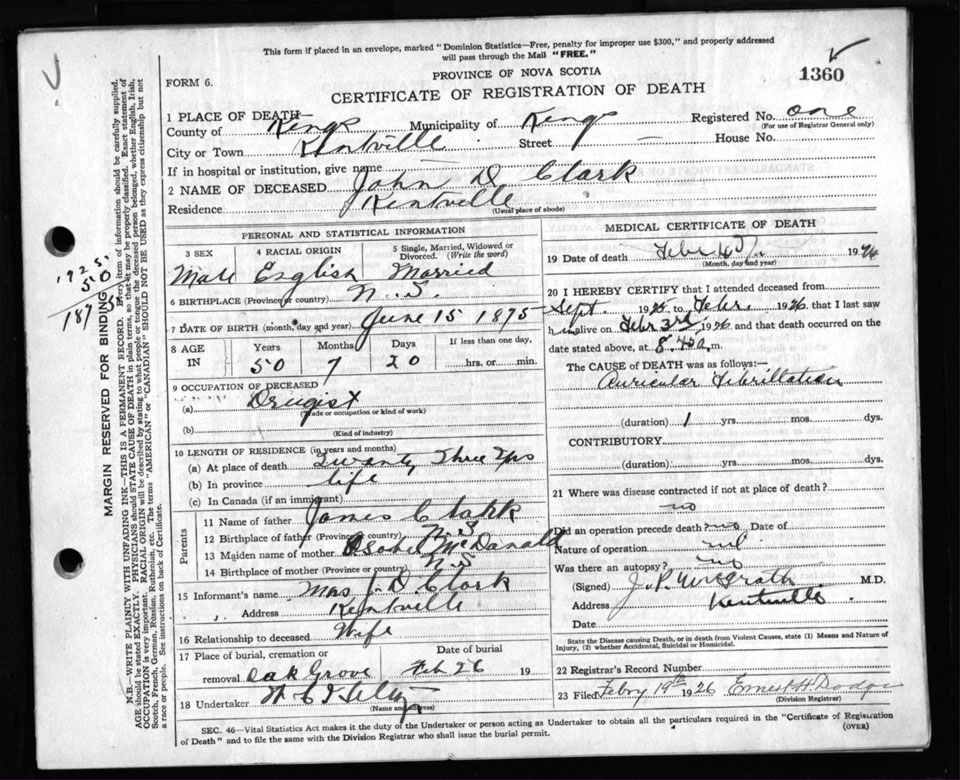 This form if placed in an envelope, marked "Dominion Statistics—Free, penalty for improper use $300," and properly addressed
will pass through the Mail "FREE."
FORM 6.
PROVINCE OF NOVA SCOTIA
1360
CERTIFICATE OF REGISTRATION OF DEATH
1 PLACE OF DEATH—
County of Kings Municipality of Kings Registered No. one
(For use of Registrar General only)
City or Town Kentville Street — House No.
If in hospital or institution, give name
2 NAME OF DECEASED John D Clark
Residence Kentville
(Usual place of abode)
PERSONAL AND STATISTICAL INFORMATION
3 SEX 4 RACIAL ORIGIN 5 Single, Married, Widowed or Divorced. (Write the word)
Male English Married
6 BIRTHPLACE (Province or country) N.S.
7 DATE OF BIRTH (month, day and year) June 15 1875
8 AGE IN Years Months Days If less than one day,
50 7 20 hrs. or min.
9 OCCUPATION OF DECEASED
(a) Drugist
(Trade or occupation or kind of work)
(b)
(Kind of industry)
10 LENGTH OF RESIDENCE (in years and months)
(a) At place of death Twenty Three Yrs
(b) In province life
(c) In Canada (if an immigrant)
Parents
11 Name of father James Clark
12 Birthplace of father (Province or country) N.S
13 Maiden name of mother McDanald
14 Birthplace of mother (Province or country) N.S
15 Informant's name Mrs J.D. Clark
" " Address Kentville
16 Relationship to deceased Wife
17 Place of burial, cremation or removal Date of burial
Oak Grove Feb 26 19
18 Undertaker
(Name and address)
MEDICAL CERTIFICATE OF DEATH
19 Date of death Febr 1926
(Month, day and year)
20 I HEREBY CERTIFY that I attended deceased from
Sept. 1925 to Febr. 1926 that I last saw
h im alive on Febr 3rd 1926 and that death occurred on the
date stated above, at 8.40 a. m.
The CAUSE of DEATH was as follows:—
Auricular Fibrillation
(duration) 1 yrs. mos. dys.
CONTRIBUTORY
(duration) yrs. mos. dys.
21 Where was disease contracted if not at place of death?
no
Did an operation precede death? no Date of
Nature of operation nil
Was there an autopsy? no
(Signed) J.P. McGrath M.D.
Address Kentville
Date
State the Disease causing Death, or in death from Violent Causes, state (1) Means and Nature of
Injury, (2) whether Accidental, Suicidal or Homicidal.
22 Registrar's Record Number
23 Filed Febry 19th 1926 Ernest H Dodge
(Division Registrar)
SEC. 46—Vital Statistics Act makes it the duty of the Undertaker or person acting as Undertaker to obtain all the particulars required in the "Certificate of Registration
of Death" and to file the same with the Division Registrar who shall issue the burial permit.
(OVER)
1925.
50
1875
MARGIN RESERVED FOR BINDING
N.B.—WRITE PLAINLY WITH UNFADING INK—THIS IS A PERMANENT RECORD. Every item of information should be carefully supplied.
AGE should be stated EXACTLY. PHYSICIANS should STATE CAUSE OF DEATH in plain terms, so that it may be properly classified. Exact statement of
OCCUPATION is very important. RACIAL ORIGIN will be described by stating to what people or tongue the deceased person belonged, whether English, Irish,
Scotch, French, German, Russian, Ruthenian, etc. The terms "AMERICAN" or "CANADIAN" SHOULD NOT BE USED as they express citizenship but not
a race or people. See instructions on back of Certificate.